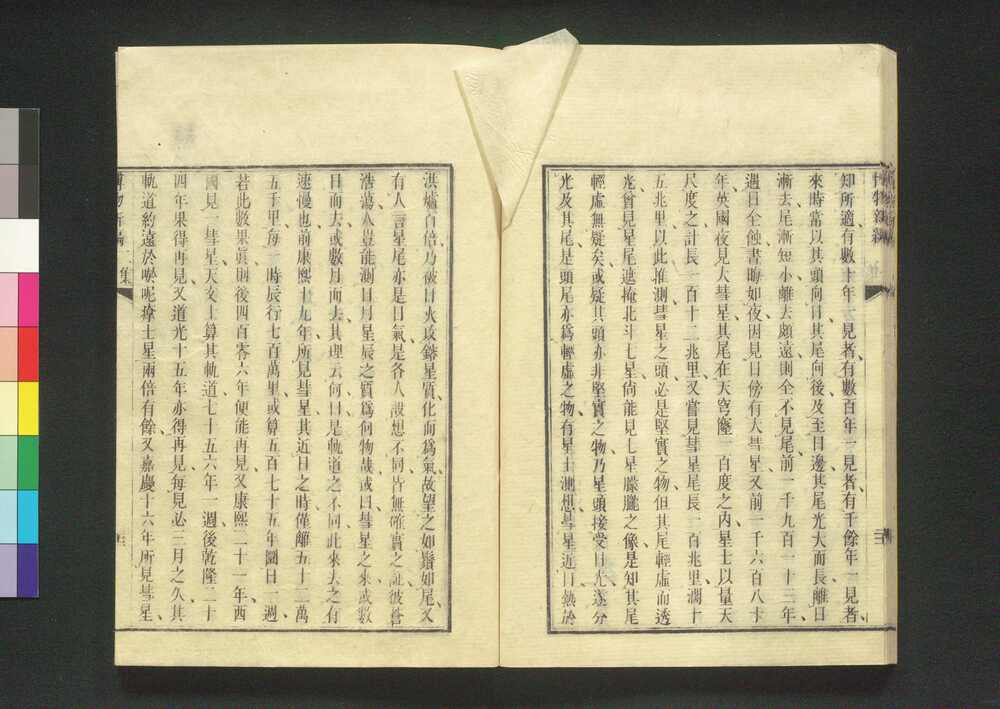 知所適有數十年一見者、有數百年一見者、有千餘年一見者、
來時常以其頭向日其尾向後及至日邊其尾光大而長離日
漸去尾漸短小離去頗遠則全不見尾前一千九百一十三年、
遇日全蝕晝晦如夜因見日傍有大彗星又前一千六百八十
年、英國夜見大彗星其尾在天穹蓋一百度之內星士以量天
尺度之計長一百十二兆里又嘗見彗星尾長一百兆里濶十
五兆里以此推測彗星之頭必是堅實之物但其尾輕虛而透
光曾見星尾遮掩北斗七星尙能見七星朦朧之像是知其尾
輕虛無疑矣或疑其頭亦非堅實之物乃星頭接受日光遂分
光及其尾是頭尾亦爲輕虛之物有星士測想彗星近日熱於
洪爐百倍乃被日火攻鎔星質化而爲氣故望之如鬚如尾又
有人言星尾亦是日氣是各人設想不同皆無確實之証彼蒼
浩蕩人豈能測日月星辰之質爲何物哉或曰彗星之來或數
日而去或數月而去其理云何曰是軌道之不同此來去之有
速慢也前康熙十九年所見彗星其近日之時僅離五十二萬
五千里、每一時辰行七百萬里或算五百七十五年圜日一週
若此數果眞則後四百零六年便能再見又康熙二十一年西
國見一彗星天文士算其軌道七十五六年一週後乾隆二十
四年果得再見又道光十五年亦得再見每見必三月之久其
軌道約遠於唹呢瘵士星兩倍有餘、又嘉慶十六年所見彗星、
博物新編 二集